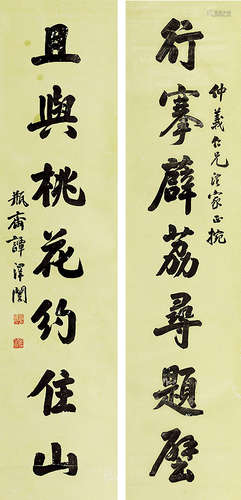 行搴薜荔尋題壁
仲義仁兄法家正捥
且與桃花約住山
瓶齋譚澤闓